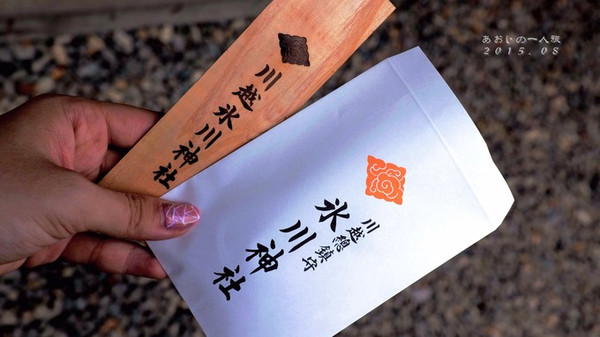 川越氷川神社
川越總鎮守
氷川神社
あおいの一人旅
2015.08